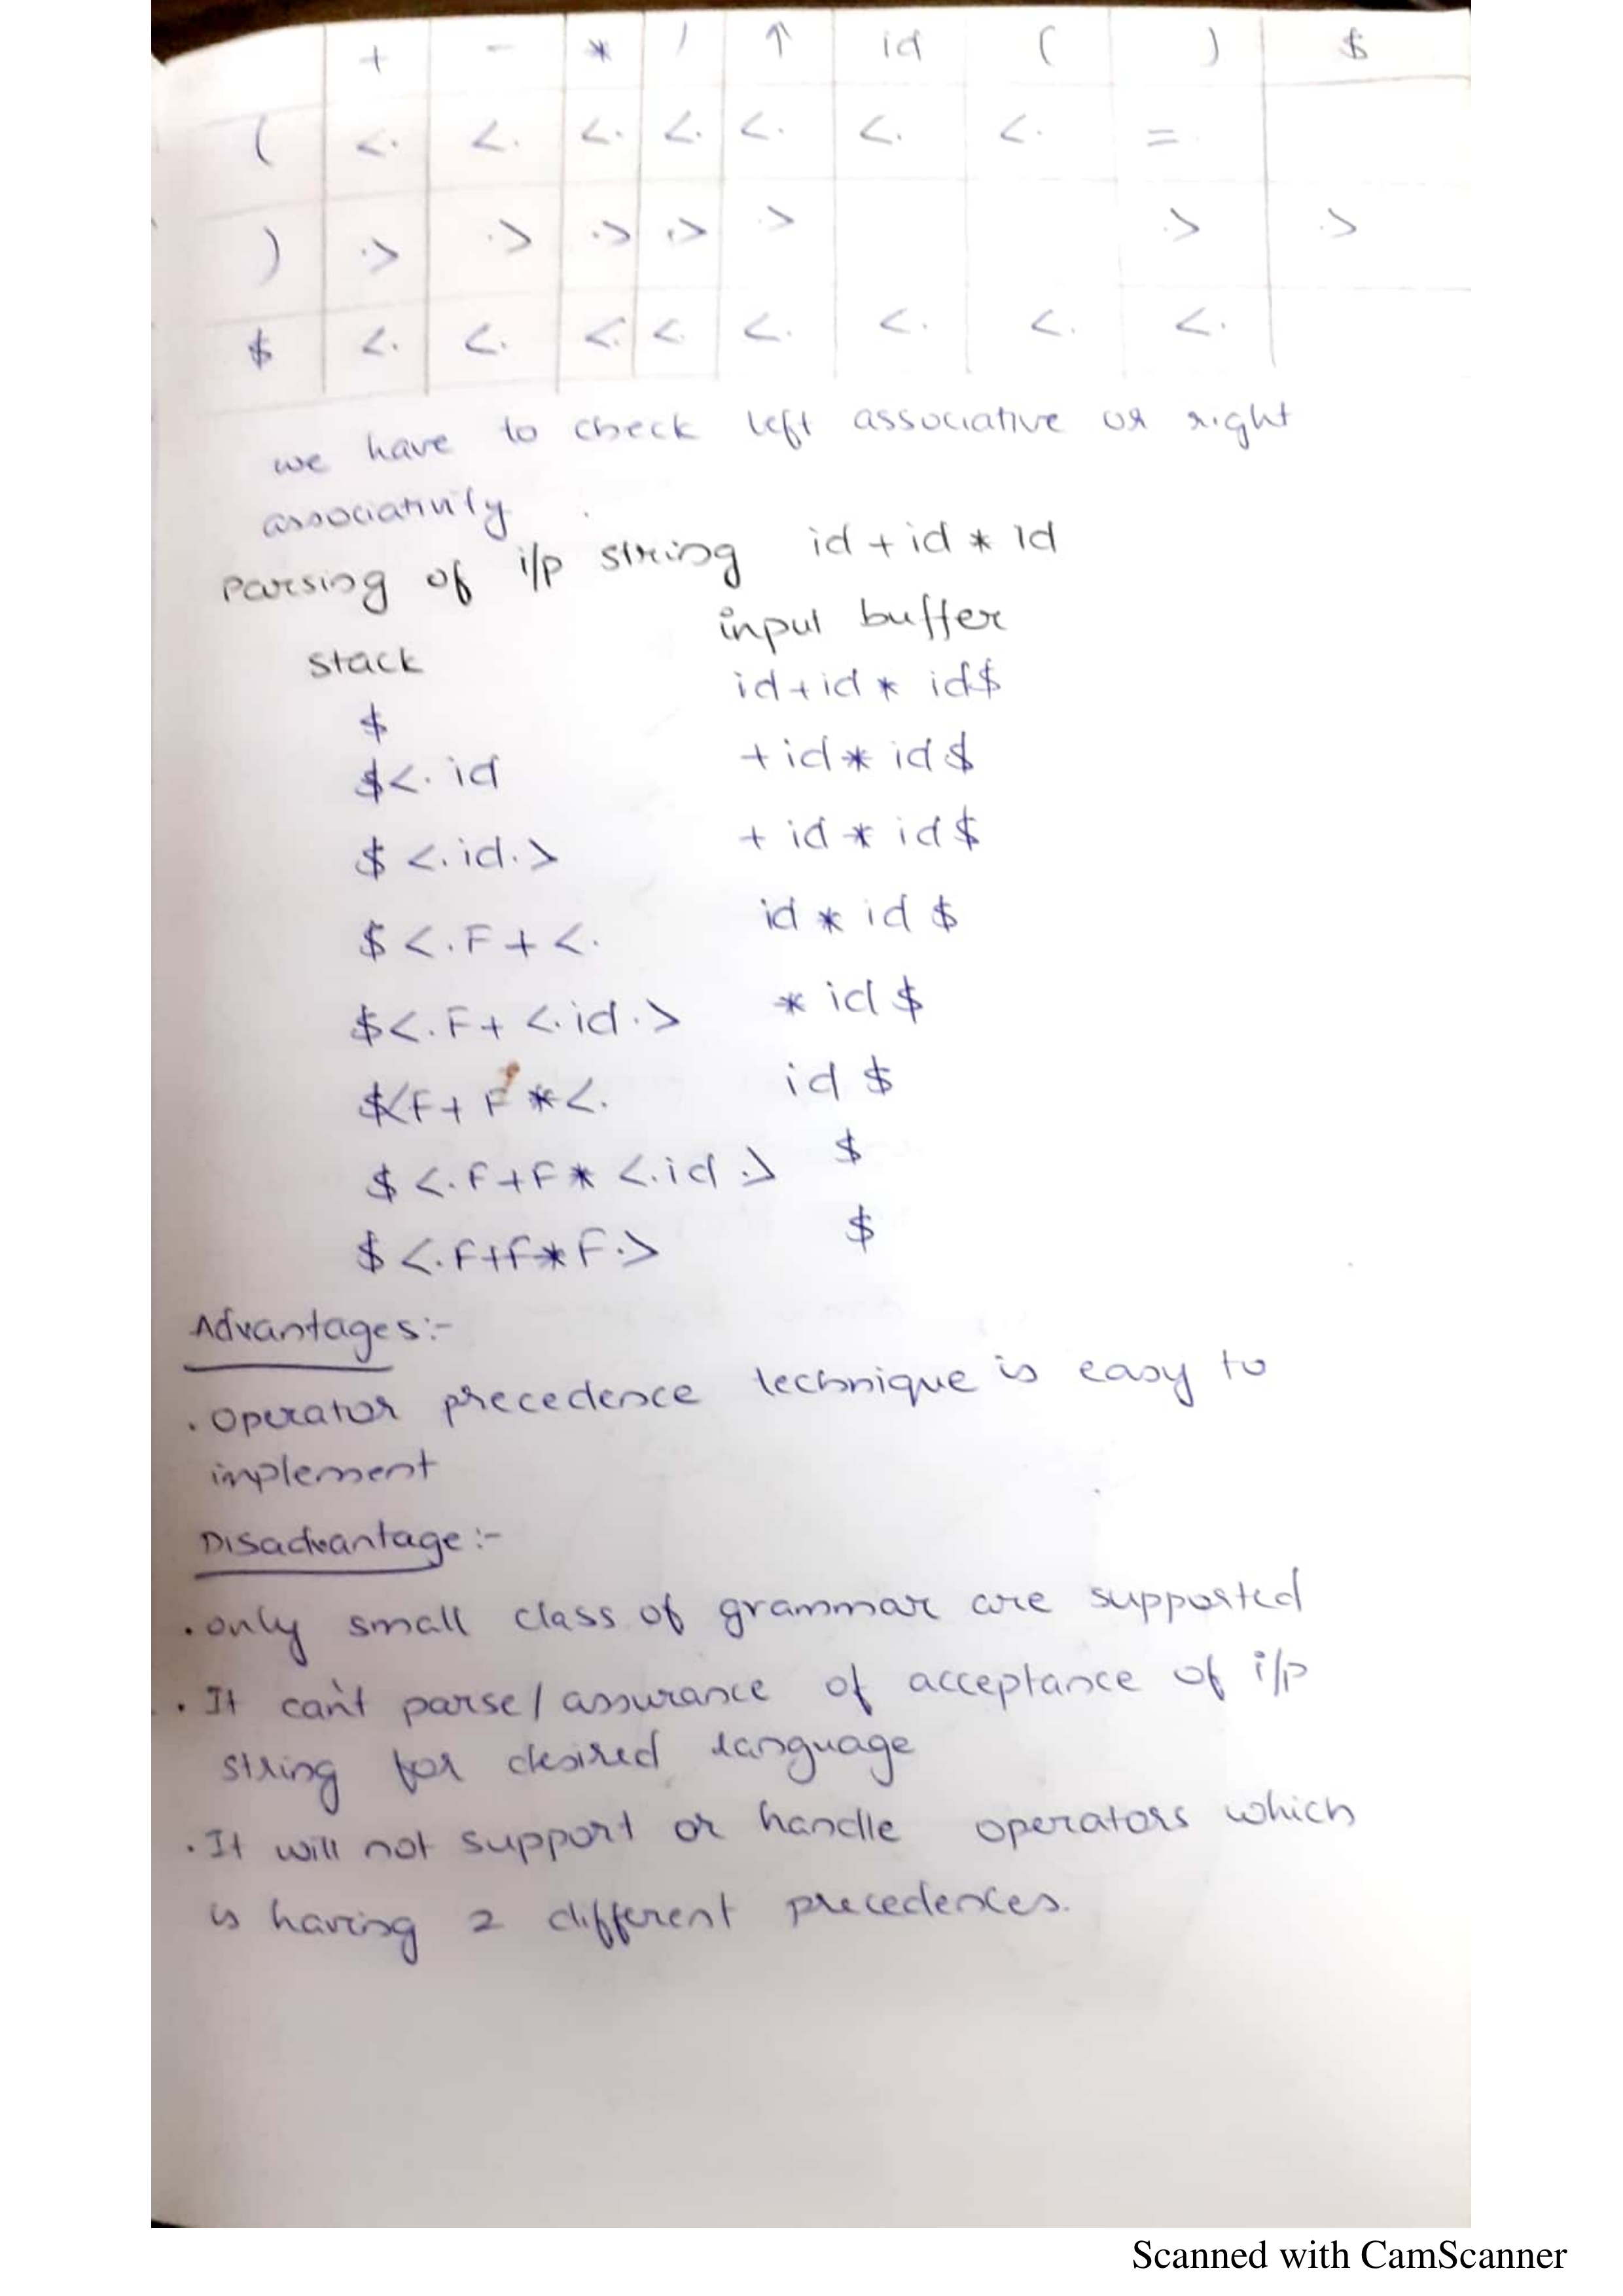 + - * / ↑ id ( ) $
( <. <. <. <. <. <. <. =
) .> .> .> .> .> .> .>
$ <. <. <. <. <. <. <. <.
we have to check left associative or right
associativity.
Parsing of i/p string id + id * id
stack input buffer
$ id+id * id$
$<. id + id * id $
$ <. id .> + id * id $
$ <. F + <. id * id $
$<. F + <. id .> * id $
$<F+ F * <. id $
$ <. F+F * <. id .> $
$ <. F+F*F .> $
Advantages:-
. Operator precedence technique is easy to
implement
Disadvantage:-
. only small class of grammar are supported
. It can't parse / assurance of acceptance of i/p
string for desired language
. It will not support or handle operators which
is having 2 different precedences.
Scanned with CamScanner